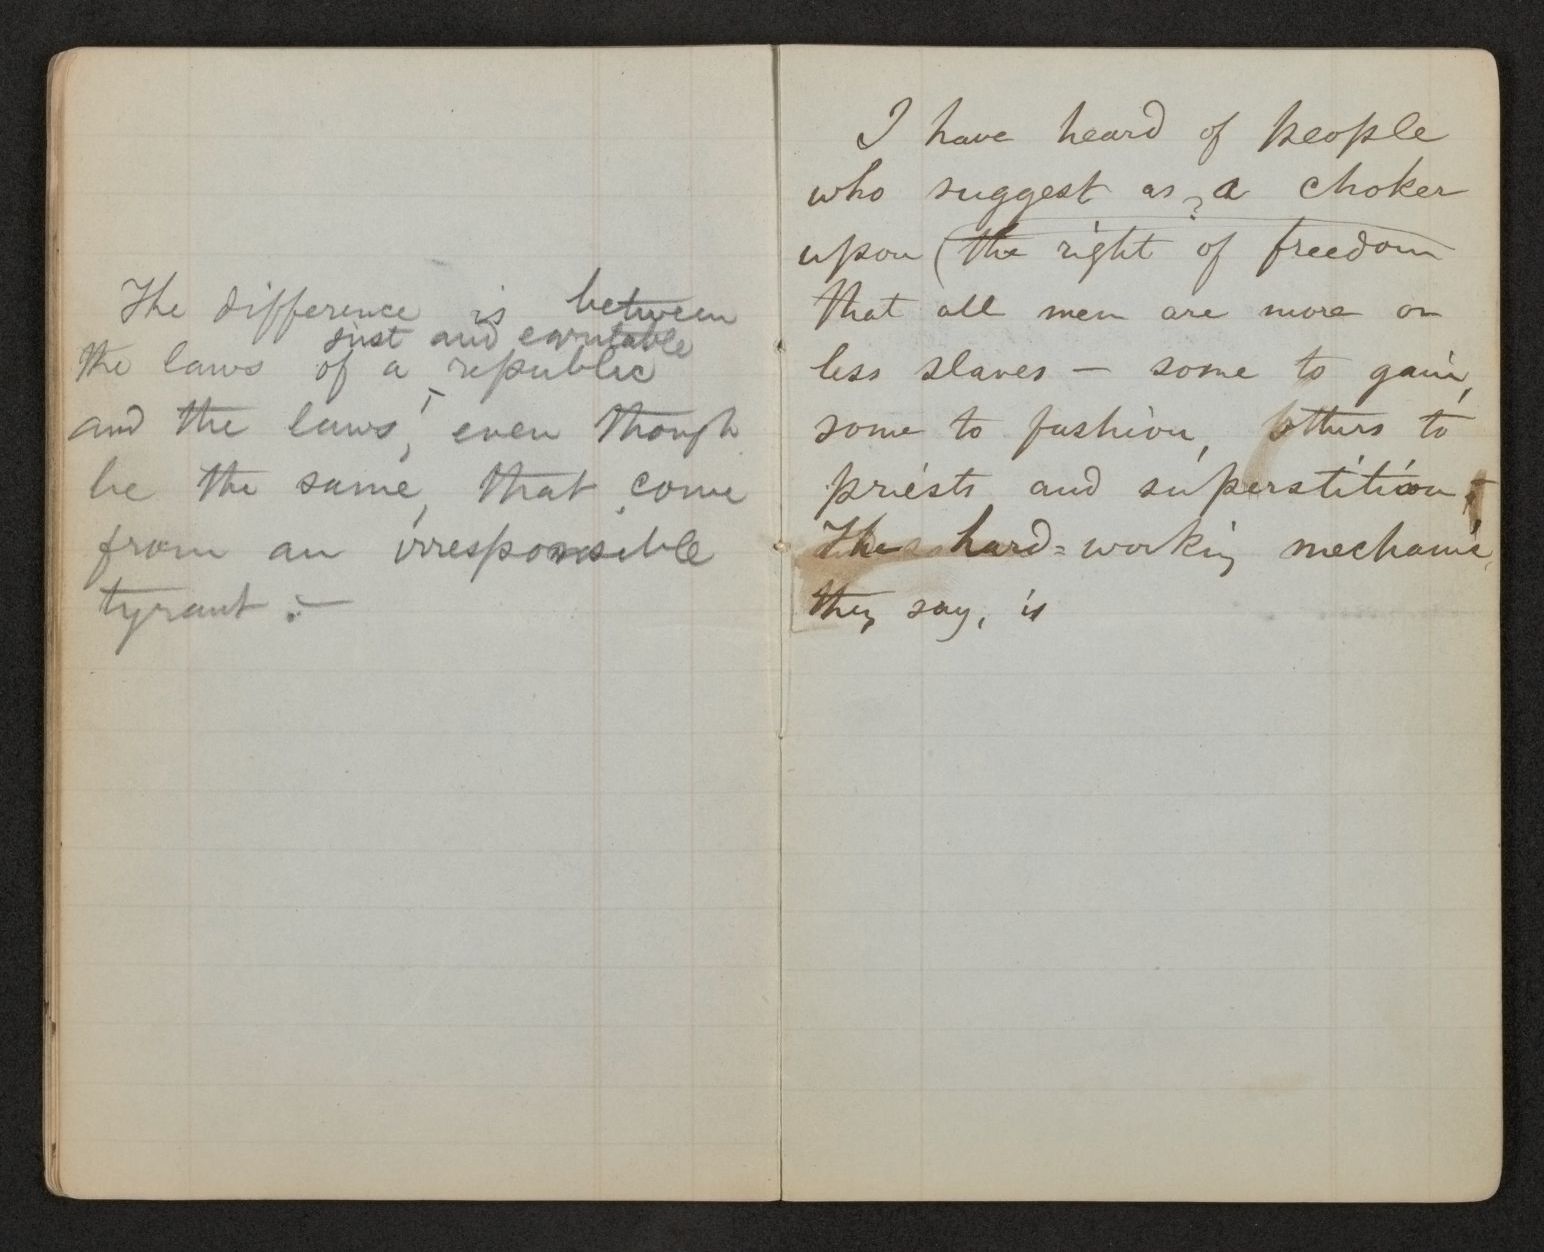 The difference is between
just and equitable
the laws of a republic
and the laws, even though
be the same, that come
from an irresponsible
tyrant.—
I have heard of people
who suggest as a choker
upon (the right of freedom
that all men are more or
less slaves — some to gain,
some to fashion, others to
priests and superstition.
The hard-working mechanic,
they say, is